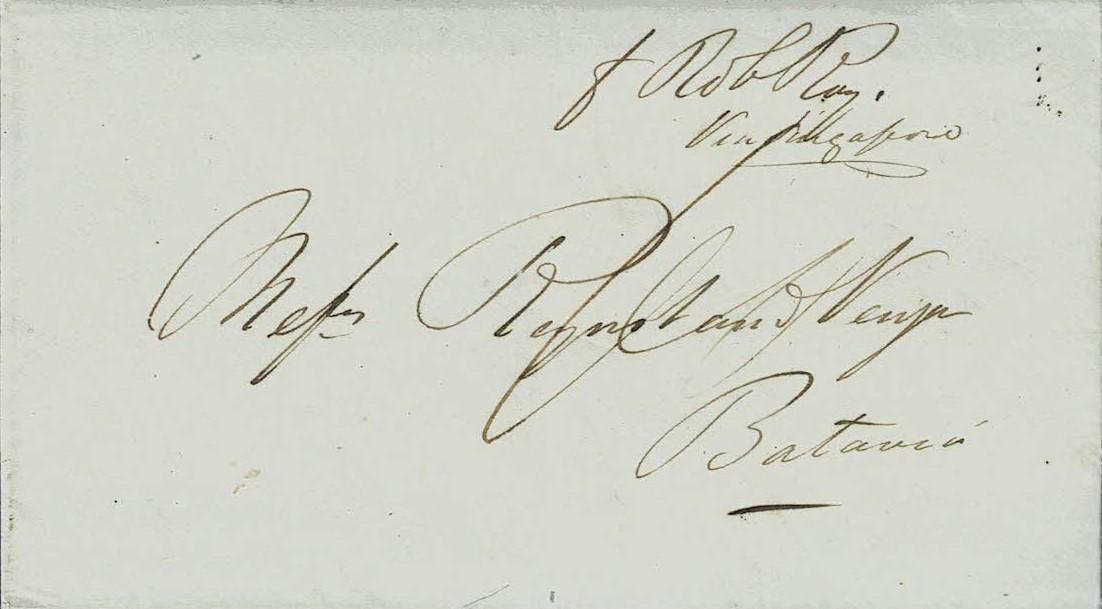 ⅌ Rob Roy.
Via Singapore
Messrs Reynst and Vinju
Batavia